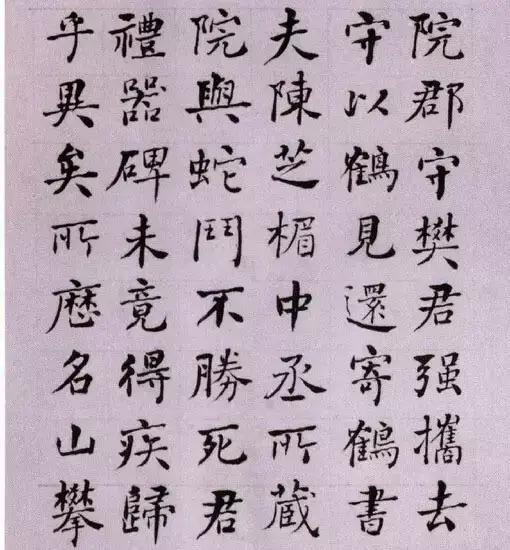 院郡守樊君强攜去
守以鶴見還寄鶴書
夫陳芝楣中丞所蔵
院與蛇鬥不勝死君
禮器碑未竟得疾歸
乎異矣所歷名山攀